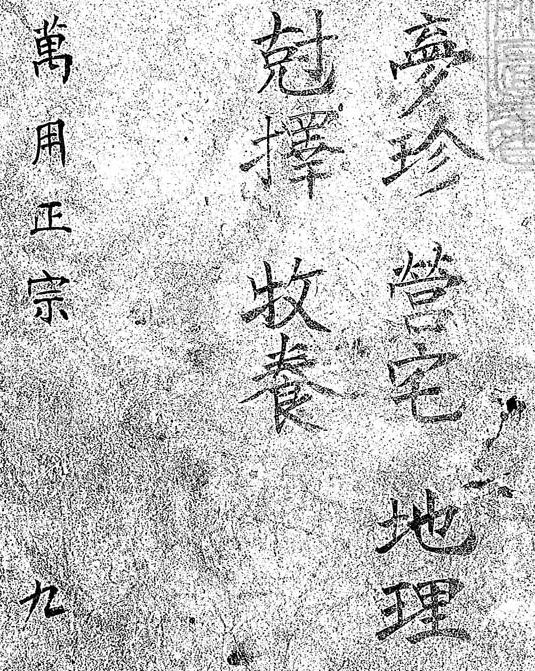 夢珍 營宅 地理
尅擇 牧養
萬用正宗 九